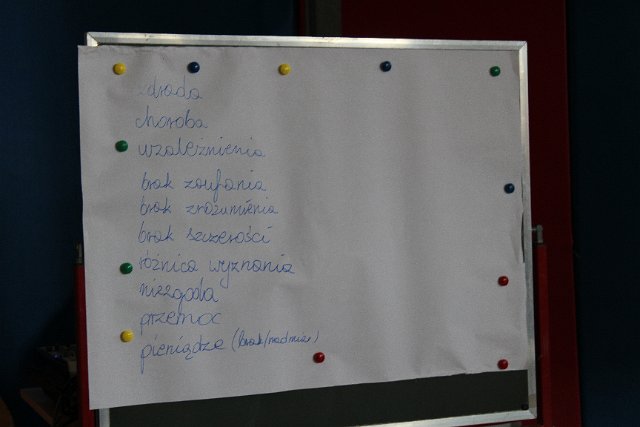 zdrada
choroba
uzależnienia
brak zaufania
brak zrozumienia
brak szczerości
różnica wyznania
niezgoda
przemoc
pieniądze (brak/nadmiar)